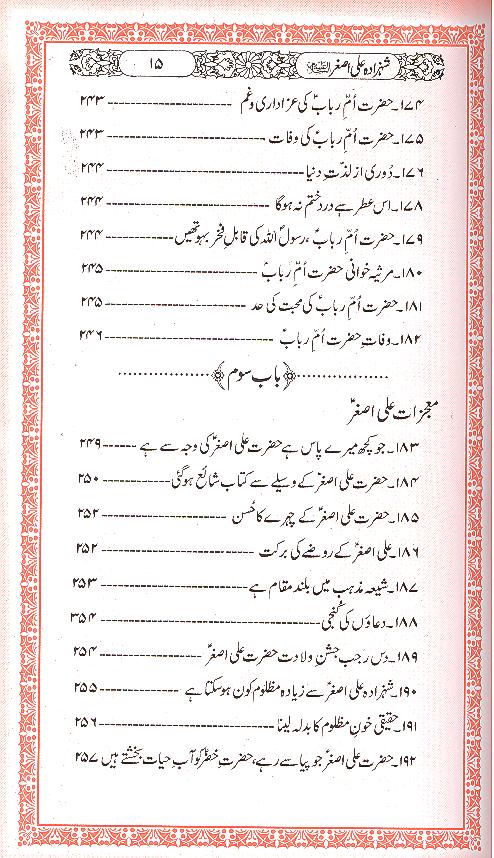 شہزادہ علی اصغرؑ ۱۵
۱۷۴۔ حضرت اُمِّ ربابؑ کی عزاداری و غم ---------- ۲۴۳
۱۷۵۔ حضرت اُمِّ ربابؑ کی وفات ---------- ۲۴۳
۱۷۶۔ دُوری از لذّتِ دنیا ---------- ۲۴۴
۱۷۸۔ اس عطر سے درد ختم نہ ہوگا ---------- ۲۴۴
۱۷۹۔ حضرت اُمِّ ربابؑ، رسولؐ اللہ کی قابلِ فخر بہو تھیں ---------- ۲۴۴
۱۸۰۔ مرثیہ خوانی حضرت اُمِّ ربابؑ ---------- ۲۴۵
۱۸۱۔ حضرت اُمِّ ربابؑ کی محبت کی حد ---------- ۲۴۵
۱۸۲۔ وفاتِ حضرت اُمِّ ربابؑ ---------- ۲۴۶
﴿باب سوم﴾
معجزات علی اصغرؑ
۱۸۳۔ جو کچھ میرے پاس ہے حضرت علی اصغرؑ کی وجہ سے ہے ------ ۲۴۹
۱۸۴۔ حضرت علی اصغرؑ کے وسیلے سے کتاب شائع ہوگئی ---------- ۲۵۰
۱۸۵۔ حضرت علی اصغرؑ کے چہرے کا حُسن ---------- ۲۵۲
۱۸۶۔ علی اصغرؑ کے روضے کی برکت ---------- ۲۵۲
۱۸۷۔ شیعہ مذہب میں بلند مقام ہے ---------- ۲۵۳
۱۸۸۔ دعاؤں کی کُنجی ---------- ۳۵۴
۱۸۹۔ دس رجب جشنِ ولادت حضرت علی اصغرؑ ---------- ۲۵۴
۱۹۰۔ شہزادہ علی اصغرؑ سے زیادہ مظلوم کون ہوسکتا ہے ---------- ۲۵۵
۱۹۱۔ حقیقی خونِ مظلوم کا بدلہ لینا ---------- ۲۵۶
۱۹۲۔ حضرت علی اصغرؑ جو پیاسے رہے، حضرتِ خضرؑ کو آبِ حیات بخشتے ہیں ۲۵۷